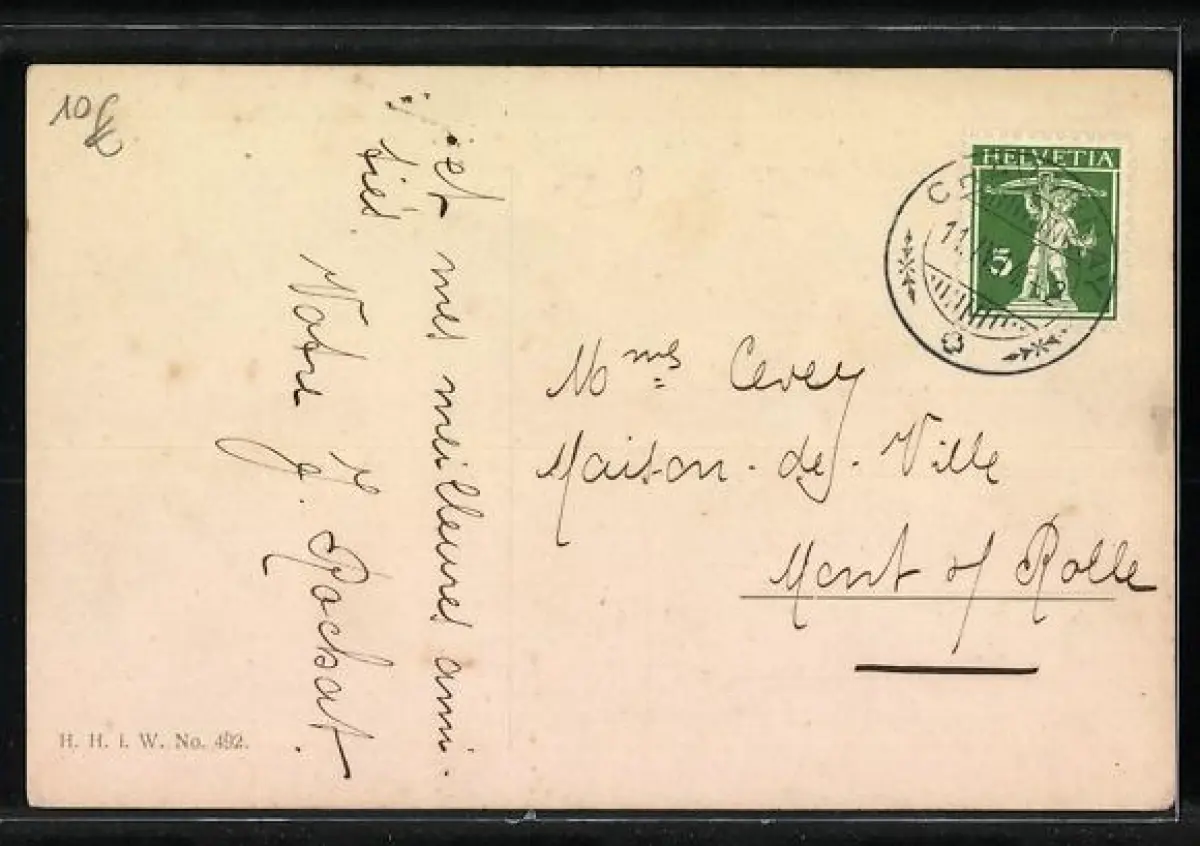 ...et mes meilleures ami-
tiés.
Votre
J. Rochat.
HELVETIA
5
Mmes Cevey
Maison-de-Ville
Mont s/ Rolle
H. H. i. W. No. 492.